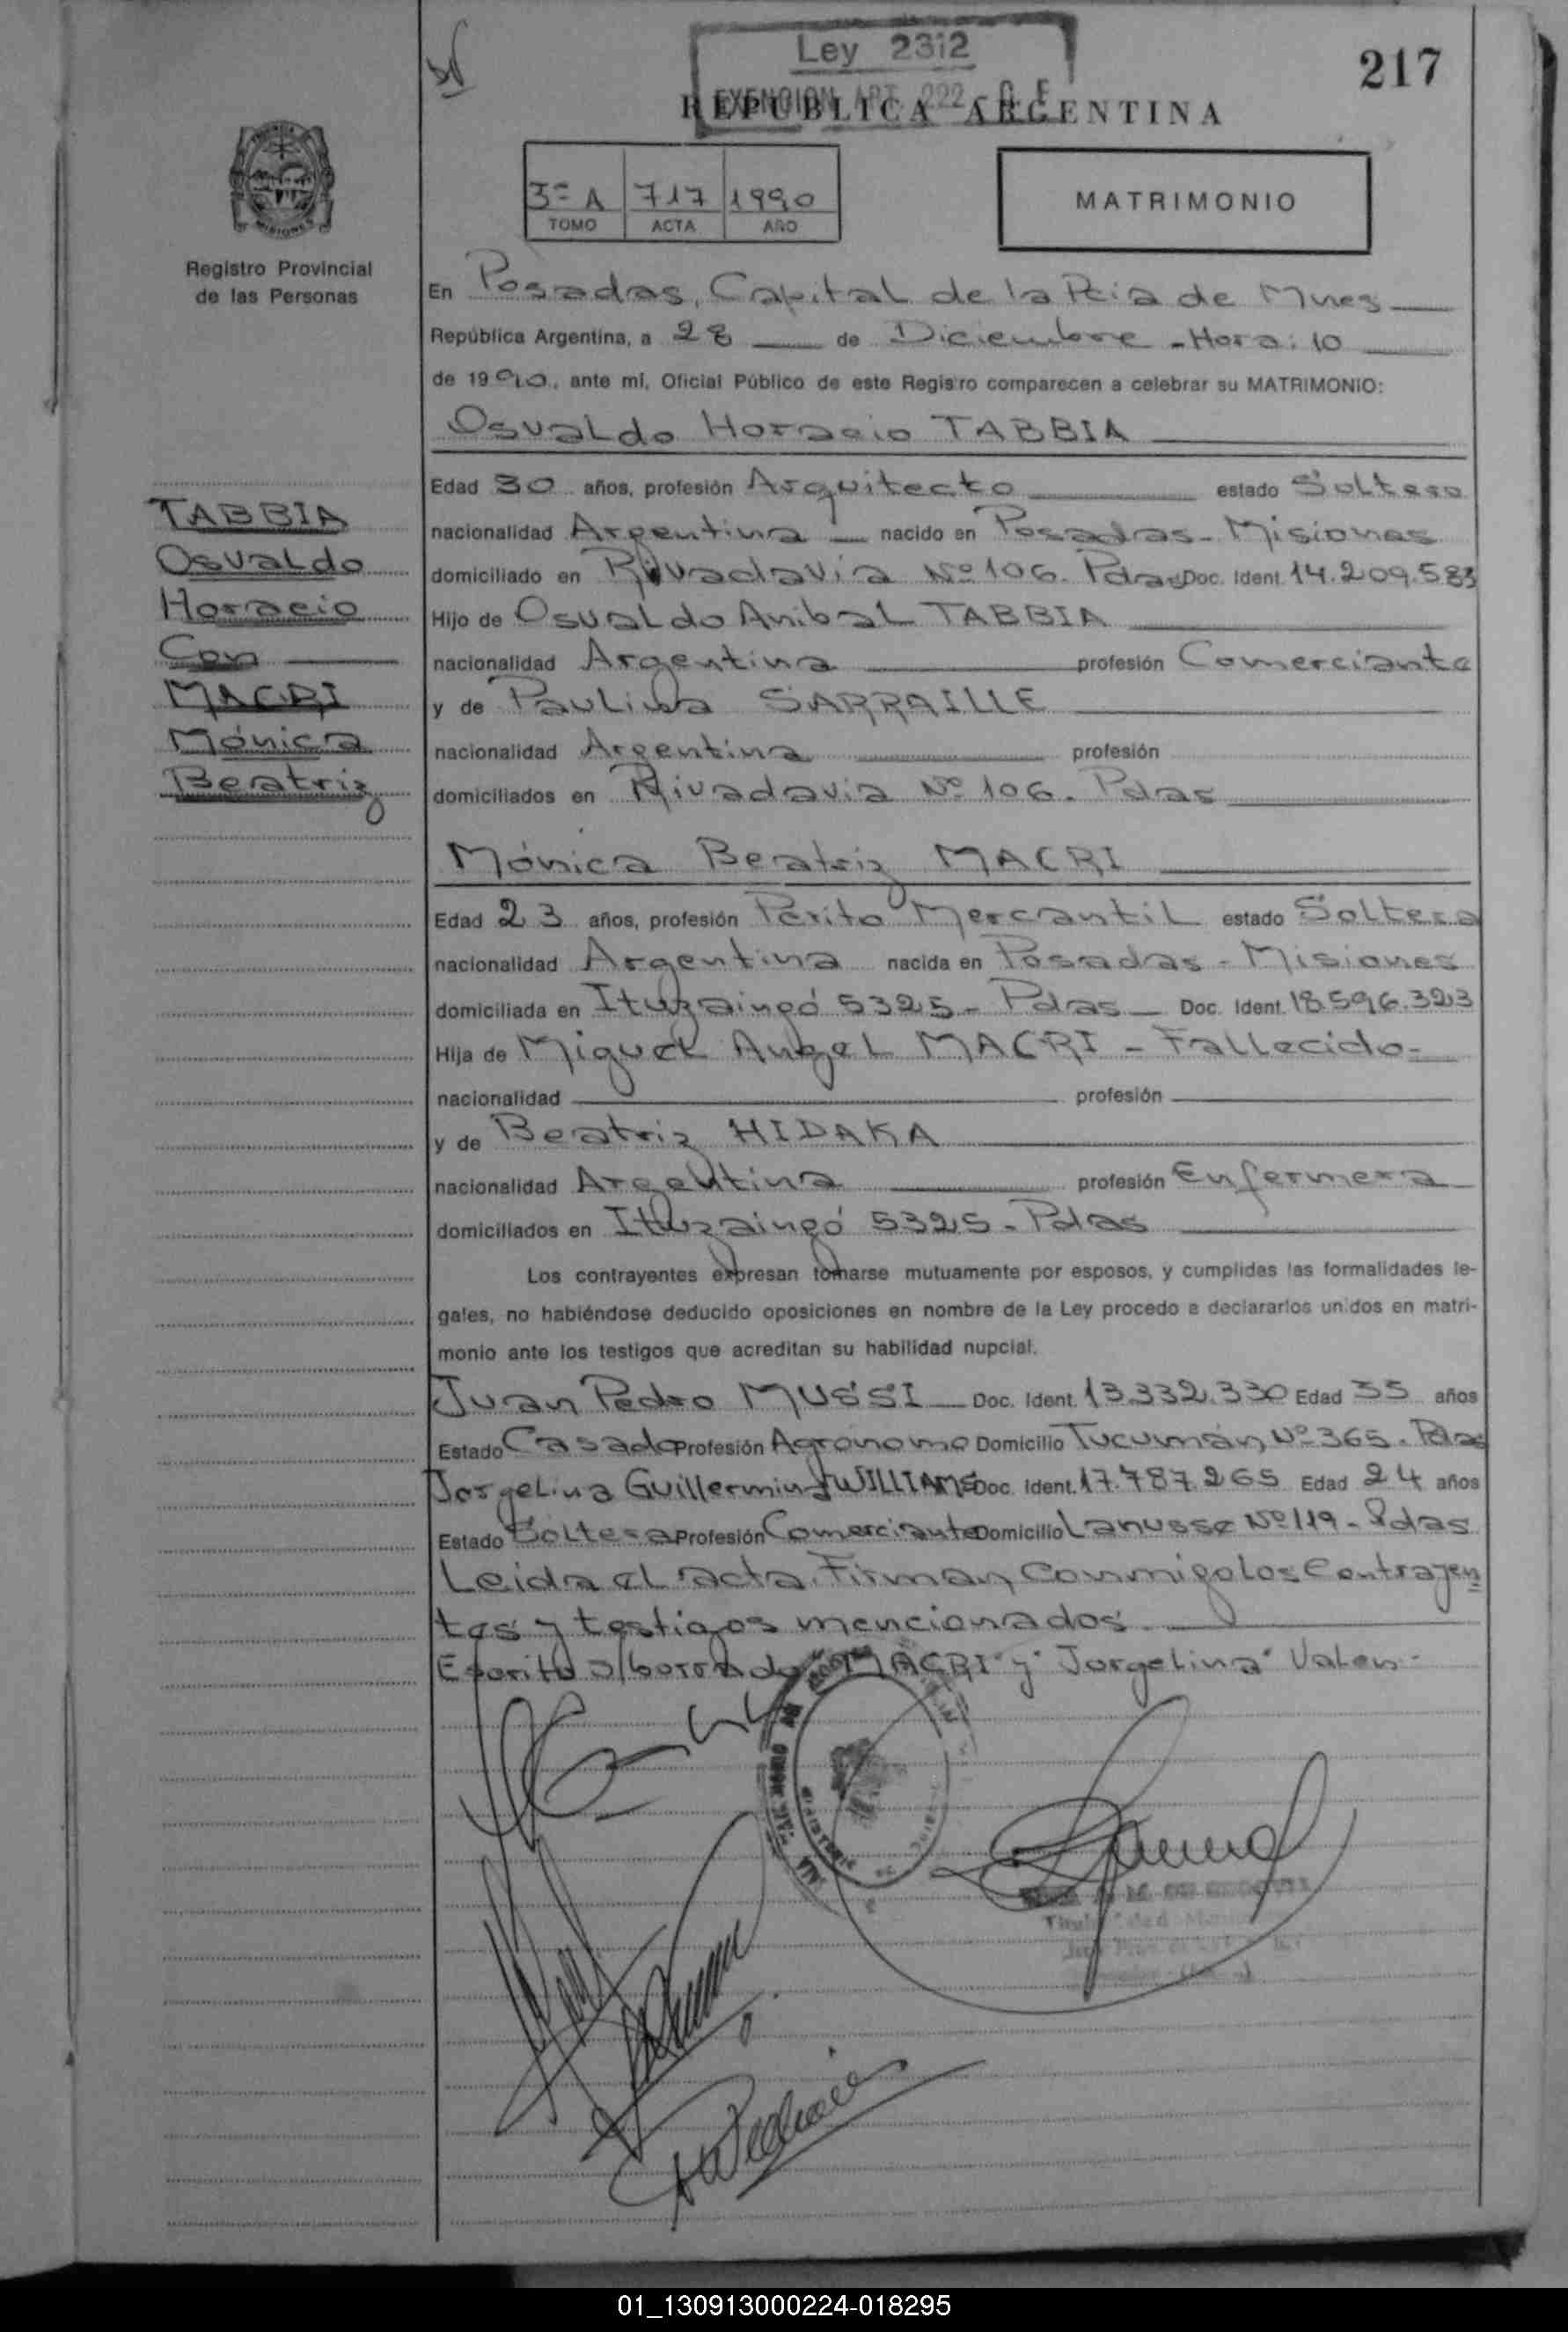 Ley 2312
EXENCION ART. 222 C. F.
217
REPUBLICA ARGENTINA
3º A 717 1990
TOMO ACTA AÑO
MATRIMONIO
MISIONES
Registro Provincial
de las Personas
En Posadas, Capital de la Pcia de Mnes
República Argentina, a 28 de Diciembre - Hora: 10
de 1990, ante mí, Oficial Público de este Registro comparecen a celebrar su MATRIMONIO:
Osvaldo Horacio TABBIA
Edad 30 años, profesión Arquitecto estado Soltero
nacionalidad Argentina nacido en Posadas - Misiones
domiciliado en Rivadavia Nº 106. Pdas Doc. Ident. 14.209.583
Hijo de Osvaldo Anibal TABBIA
nacionalidad Argentina profesión Comerciante
y de Paulina SARRAILLE
nacionalidad Argentina profesión
domiciliados en Rivadavia Nº 106. Pdas
TABBIA
Osvaldo
Horacio
Con
MACRI
Mónica
Beatriz
Mónica Beatriz MACRI
Edad 23 años, profesión Perito Mercantil estado Soltera
nacionalidad Argentina nacida en Posadas - Misiones
domiciliada en Ituzaingó 5325 - Pdas Doc. Ident. 18.596.323
Hija de Miguel Angel MACRI - Fallecido -
nacionalidad profesión
y de Beatriz HIDAKA
nacionalidad Argentina profesión Enfermera
domiciliados en Ituzaingó 5325 - Pdas
Los contrayentes expresan tomarse mutuamente por esposos, y cumplidas las formalidades le-
gales, no habiéndose deducido oposiciones en nombre de la Ley procedo a declararlos unidos en matri-
monio ante los testigos que acreditan su habilidad nupcial.
Juan Pedro MUSSI Doc. Ident. 13.332.330 Edad 35 años
Estado Casado Profesión Agrónomo Domicilio Tucumán Nº 365. Pdas
Jorgelina Guillermina WILLIAMS Doc. Ident. 17.787.265 Edad 24 años
Estado Soltera Profesión Comerciante Domicilio Lanusse Nº 119 - Pdas
Leida el acta, Firman Conmigo los Contrayen
tes y testigos mencionados.
Escrito s/borrado "MACRI" y "Jorgelina" Valen -
01_130913000224-018295